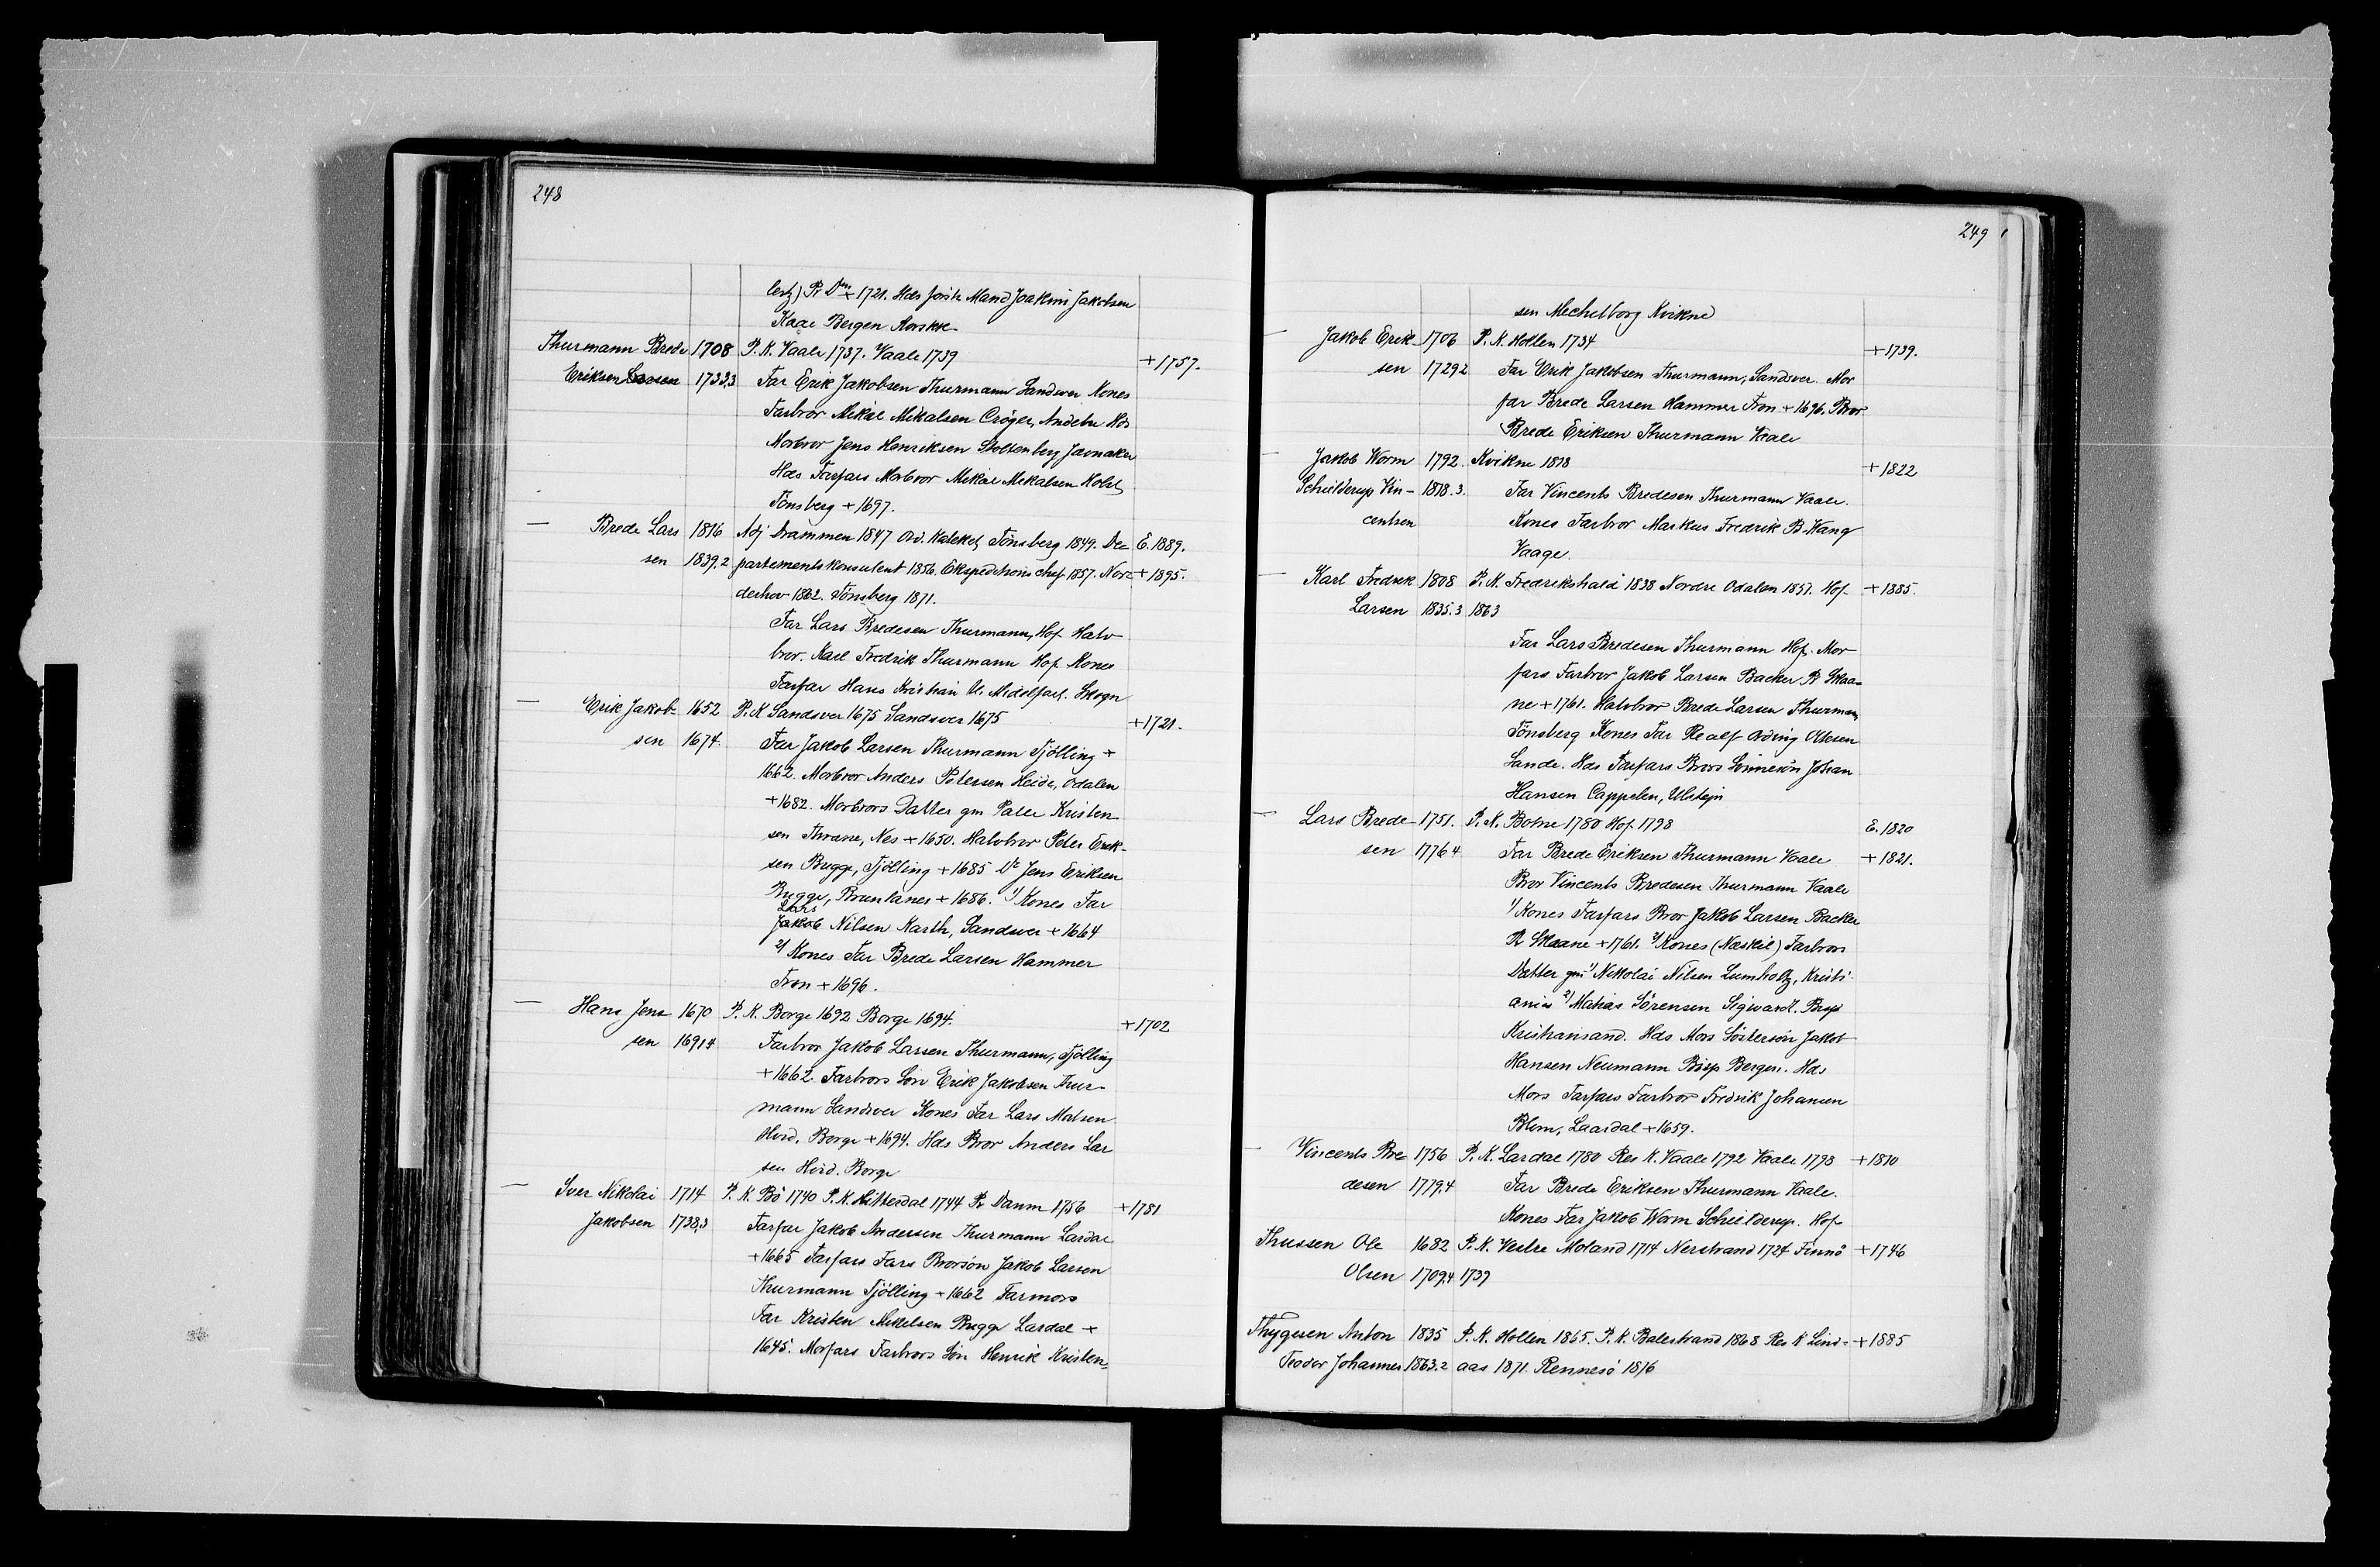 248
lertz) Pr Dm + 1721. Hds første Mand Joakim Jakobsen
Kaae Bergen Korskk.
Thurmann Brede 1708 P. K. Vaale 1737. Vaale 1739 +1757.
Eriksen 1733.3 Far Erik Jakobsen Thurmann Sandsver Kones
Farbror Mikael Mikalsen Crøger, Andebu Hds
Morbror Jens Henriksen Stoltenberg Jævnaker
Hds Farfars Morbror Mikael Mikalsen Holst
Tønsberg + 1697.
— Brede Lars 1816 Adj Drammen 1847 Ord. Katekel Tønsberg 1849. De= E. 1889.
sen 1839.2 partementskonsulent 1856. Ekspeditionschef 1857. Nor= + 1895.
derhov 1862. Tønsberg 1871.
Far Lars Bredesen Thurmann, Hof Halv-
bror. Karl Fredrik Thurmann Hof Kones
Farfar Hans Kristian U. Midelfart. Skogn
— Erik Jakob- 1652 P. K Sandsver 1675 Sandsver 1675 +1721.
sen 1674. Far Jakob Larsen Thurmann Tjølling +
1662. Morbror Anders Petersen Heide, Odalen
+ 1682. Morbrors Datter gm Palle Kristen-
sen Thrane, Nes + 1650. Halvbror Peter Erik-
sen Bugge, Tjølling + 1685 Do Jens Eriksen
Bugge, Brunlanes + 1686. 1) Kones Far
Lars
Jakob Nilsen Karth, Sandsver + 1664
2) Kones Far Brede Larsen Hammer
Fron + 1696.
— Hans Jens- 1670 P. K. Borge 1692 Borge 1694. +1702
sen 1691.4 Farbror Jakob Larsen Thurmann, Tjølling
+ 1662. Farbrors Søn Erik Jakobsen Thur-
mann Sandsver Kones Far Lars Matsen
Hvid. Borge + 1694. Hds Bror Anders Lar
sen Hvid. Borge
— Iver Nikolai 1714 P. K. Bø 1740 P. K. Hitterdal 1744 Pr Danm 1756 +1781
Jakobsen 1738,3 Farfar Jakob Andersen Thurmann Lardal
+ 1665 Farfars Fars Brorsøn Jakob Larsen
Thurmann Tjølling + 1662 Farmors
Far Kristen Mikkelsen Bugge Lardal +
1645. Morfars Farbrors Søn Henrik Kristen=
249
sen Mechelborg Kvikne
— Jakob Erik- 1706 P. K. Hollen 1734 +1739.
sen 1729.2 Far Erik Jakobsen Thurmann, Sandsver. Mor
far Brede Larsen Hammer Fron + 1696. Bror
Brede Eriksen Thurmann Vaale
— Jakob Worm 1792. Kvikne 1818 +1822
Schielderup Vin- 1818.3. Far Vincents Bredesen Thurmann Vaale.
centsen Kones Farbror Markus Fredrik B. Wang
Vaage.
— Karl Fredrik 1808 P. K. Fredrikshald 1838 Nordre Odalen 1851. Hof +1885.
Larsen 1835.3 1863
Far Lars Bredesen Thurmann Hof. Mor
fars Farbror Jakob Larsen Backer Pr Skaa=
ne + 1761. Halvbror Brede Larsen Thurmann
Tønsberg Kones Far Realf Ording Ottesen
Sande. Hds Farfars Brors Sønnesøn Johan
Hansen Cappelen, Ulstejn
— Lars Brede- 1751. P. K. Botne 1780 Hof 1798 E. 1820
sen 1776 4 Far Brede Eriksen Thurmann Vaale +1821.
Bror Vincents Bredesen Thurmann Vaale
1) Kones Farfars Bror Jakob Larsen Backer
Pr Skaane + 1761. 2) Kones (Næskil) Farbrors
Datter gm 1) Nikolai Nilsen Lumholtz, Kristi-
ania 2) Matias Sørensen Sigwardt. Bisp
Kristiansand. Hds Mors Søstersøn Jakob
Hansen Neumann Bisp Bergen. Hds
Mors Farfars Farbror Fredrik Johansen
Blom, Laardal + 1659.
— Vincents Bre 1756 P. K. Lardal 1780 Res K. Vaale 1792 Vaale 1798 +1810
desen 1779.4 Far Brede Eriksen Thurmann Vaale.
Kones Far Jakob Worm Schielderup. Hof
Thussen Ole 1682 P. K. Vestre Moland 1714 Nerstrand 1724 Finnø +1746
Olsen 1709.4 1739
Thygesen Anton 1835 P. K. Hollen 1865. P. K. Balestrand 1868 Res K Lind= +1885
Teodor Johannes 1863.2 aas 1871. Rennesø 1876